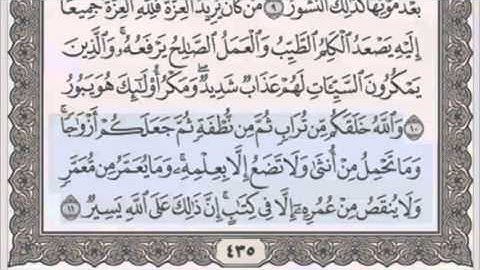 بَعْدَ مَوْتِهَا كَذَٰلِكَ النُّشُورُ ٩ مَن كَانَ يُرِيدُ الْعِزَّةَ فَلِلَّهِ الْعِزَّةُ جَمِيعًا
إِلَيْهِ يَصْعَدُ الْكَلِمُ الطَّيِّبُ وَالْعَمَلُ الصَّالِحُ يَرْفَعُهُ ۚ وَالَّذِينَ
يَمْكُرُونَ السَّيِّئَاتِ لَهُمْ عَذَابٌ شَدِيدٌ ۖ وَمَكْرُ أُولَٰئِكَ هُوَ يَبُورُ
١٠ وَاللَّهُ خَلَقَكُم مِّن تُرَابٍ ثُمَّ مِن نُّطْفَةٍ ثُمَّ جَعَلَكُمْ أَزْوَاجًا ۚ
وَمَا تَحْمِلُ مِنْ أُنثَىٰ وَلَا تَضَعُ إِلَّا بِعِلْمِهِ ۚ وَمَا يُعَمَّرُ مِن مُّعَمَّرٍ
وَلَا يُنقَصُ مِنْ عُمُرِهِ إِلَّا فِي كِتَابٍ ۚ إِنَّ ذَٰلِكَ عَلَى اللَّهِ يَسِيرٌ ١١
٤٣٥